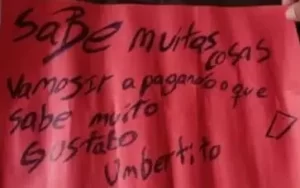 SaBe muitas cosas
Vamosir a pagando o que
sabe muito
Gustabo
Umbertito